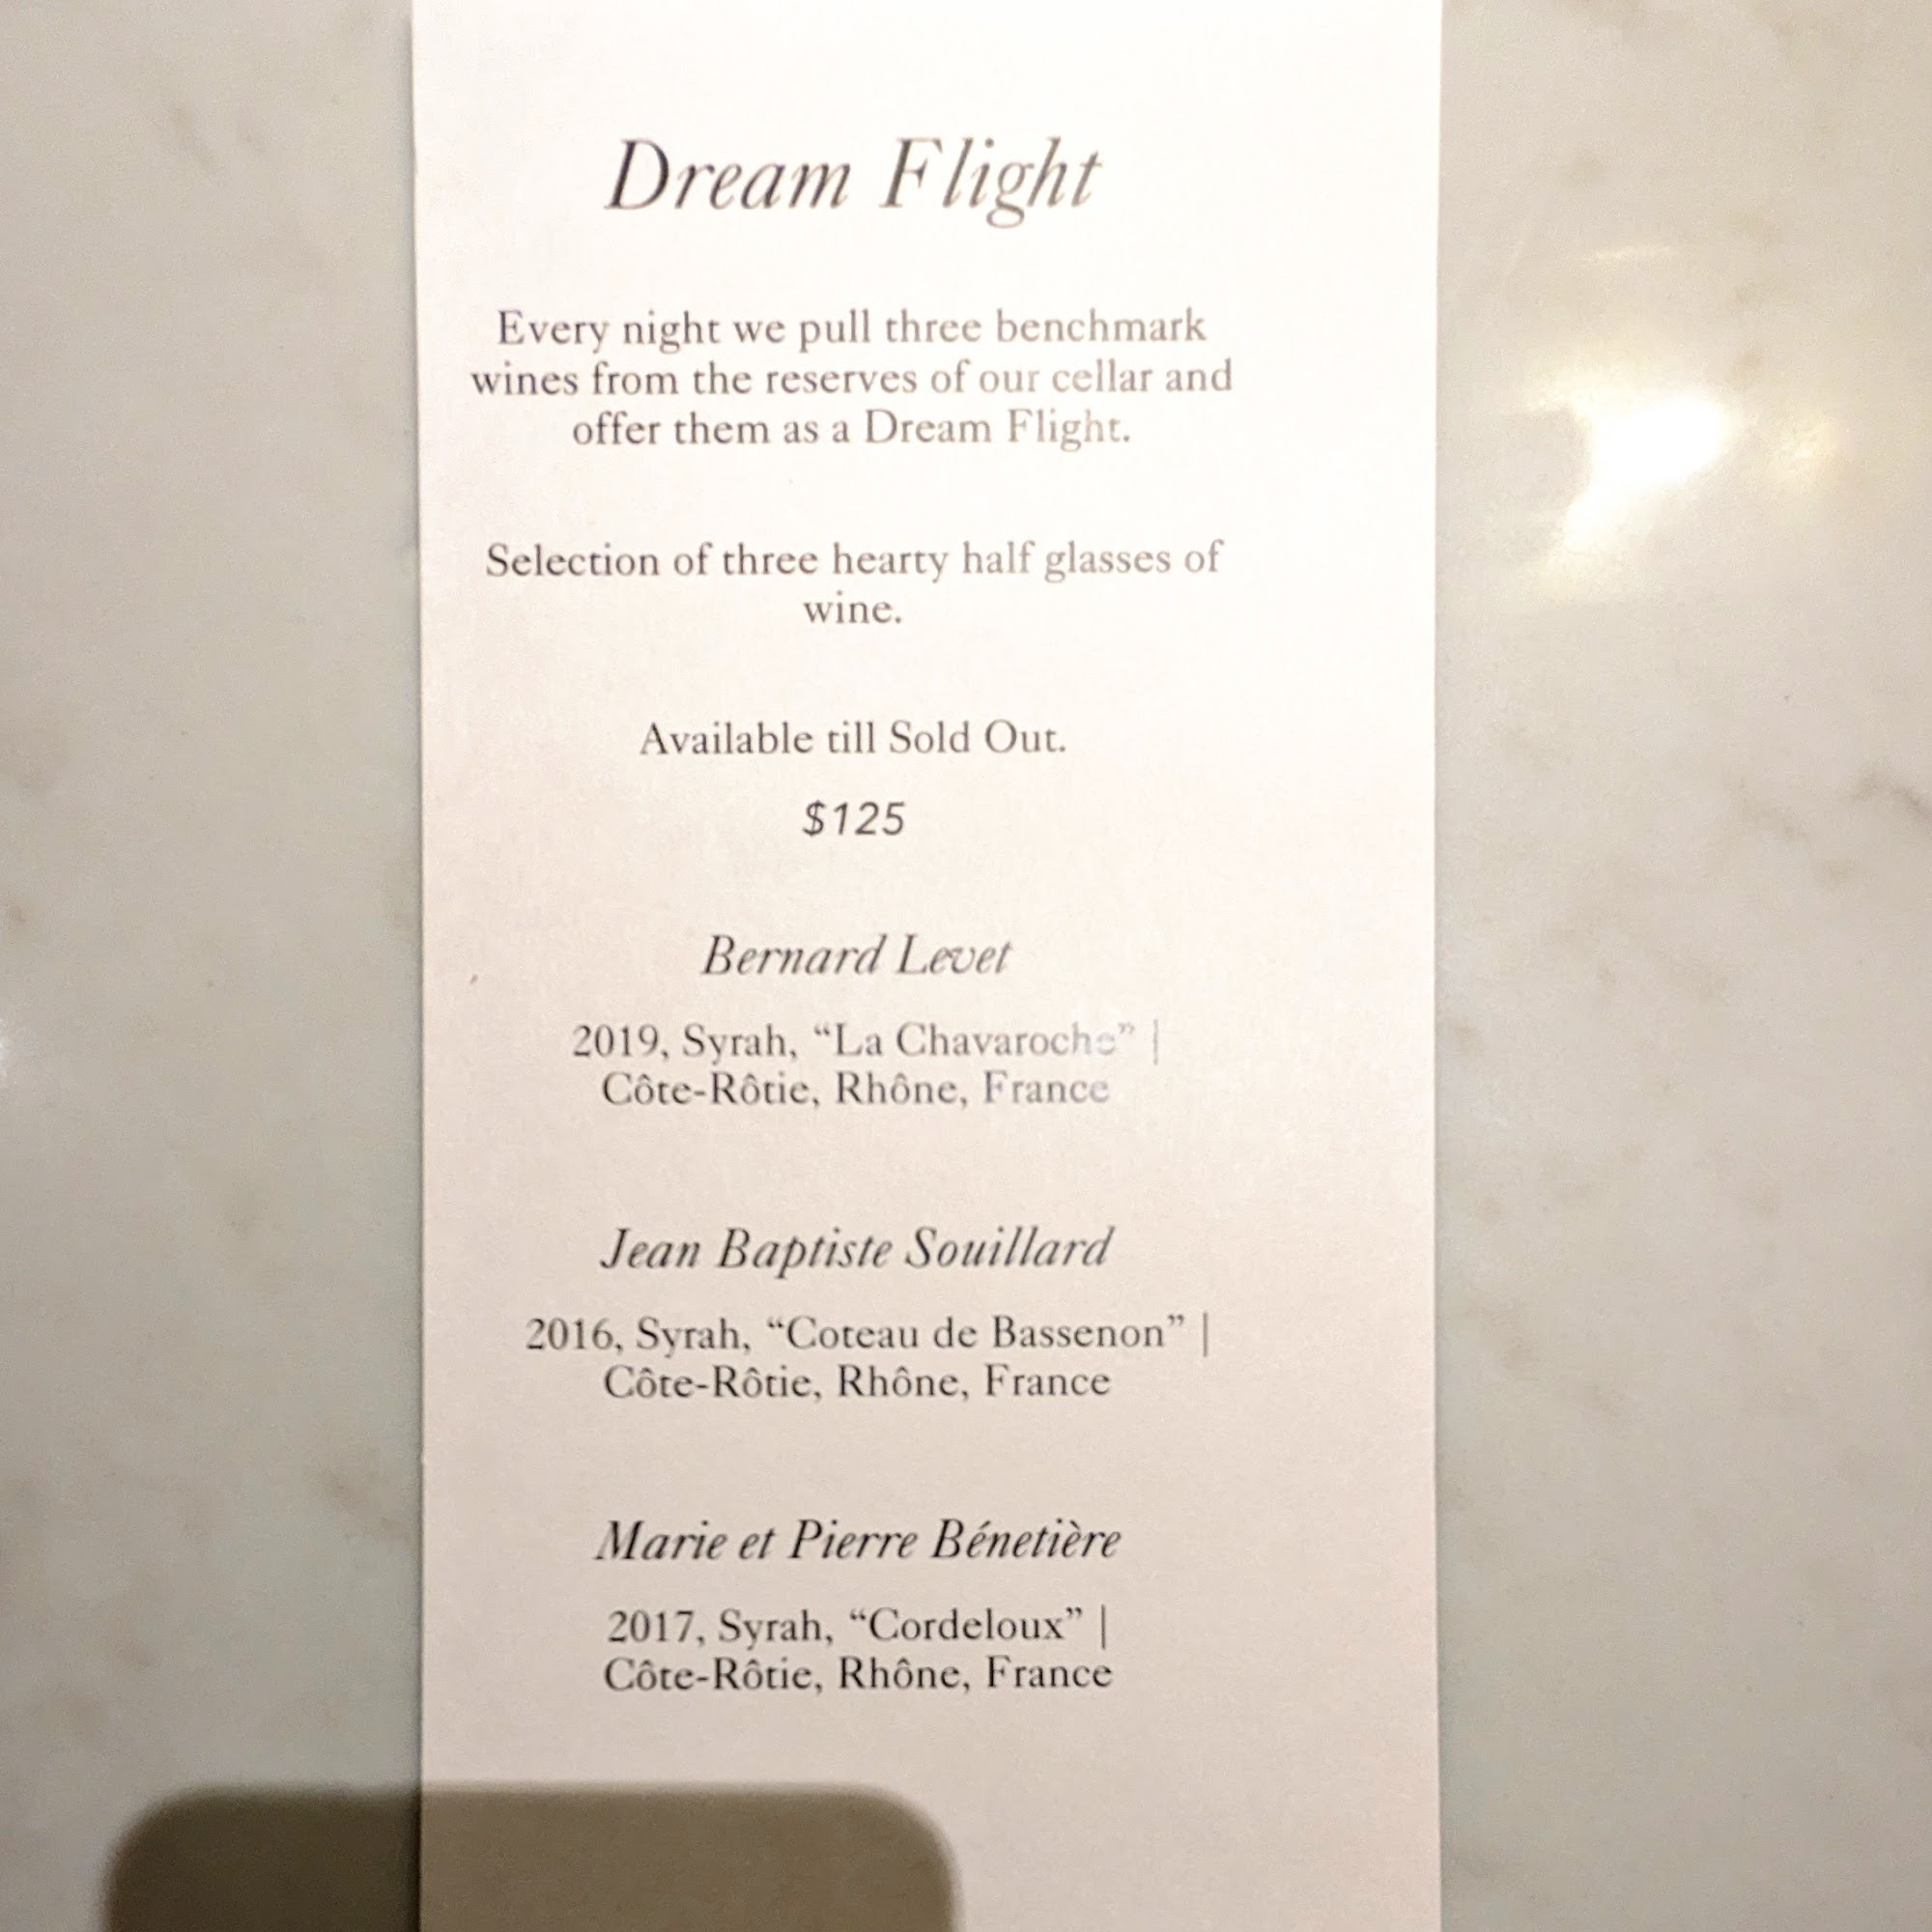 Dream Flight
Every night we pull three benchmark
wines from the reserves of our cellar and
offer them as a Dream Flight.
Selection of three hearty half glasses of
wine.
Available till Sold Out.
$125
Bernard Levet
2019, Syrah, “La Chavaroche” |
Côte-Rôtie, Rhône, France
Jean Baptiste Souillard
2016, Syrah, “Coteau de Bassenon” |
Côte-Rôtie, Rhône, France
Marie et Pierre Bénetière
2017, Syrah, “Cordeloux” |
Côte-Rôtie, Rhône, France